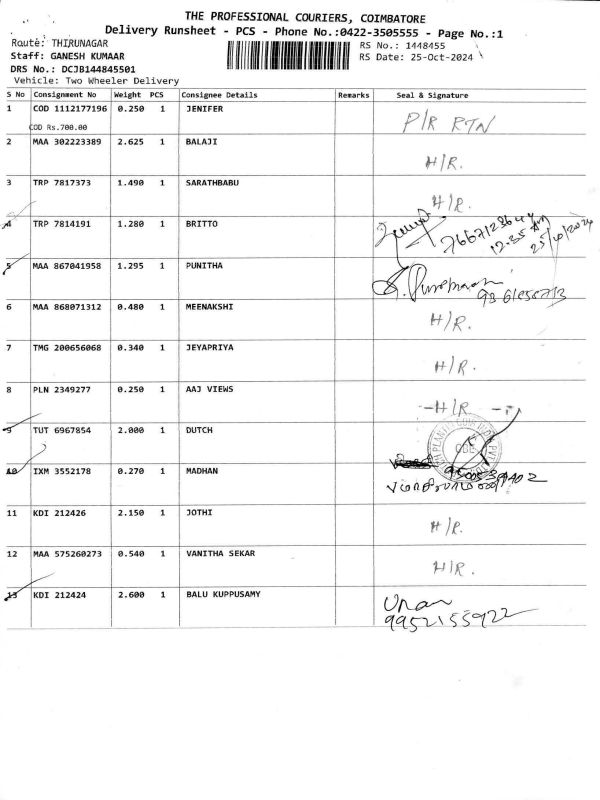 THE PROFESSIONAL COURIERS, COIMBATORE
Delivery Runsheet - PCS - Phone No.:0422-3505555 - Page No.:1
Route: THIRUNAGAR RS No.: 1448455
Staff: GANESH KUMAAR RS Date: 25-Oct-2024
DRS No.: DCJB144845501
Vehicle: Two Wheeler Delivery
S No Consignment No Weight PCS Consignee Details Remarks Seal & Signature
1 COD 1112177196 0.250 1 JENIFER P/R RTN
COD Rs.700.00
2 MAA 302223389 2.625 1 BALAJI H/R.
3 TRP 7817373 1.490 1 SARATHBABU H/R.
4 TRP 7814191 1.280 1 BRITTO 12.35 25/10/2024
5 MAA 867041958 1.295 1 PUNITHA
6 MAA 868071312 0.480 1 MEENAKSHI H/R.
7 TMG 200656068 0.340 1 JEYAPRIYA H/R.
8 PLN 2349277 0.250 1 AAJ VIEWS H/R
9 TUT 6967854 2.000 1 DUTCH
10 IXM 3552178 0.270 1 MADHAN
11 KDI 212426 2.150 1 JOTHI H/R.
12 MAA 575260273 0.540 1 VANITHA SEKAR H/R.
13 KDI 212424 2.600 1 BALU KUPPUSAMY
9952155922